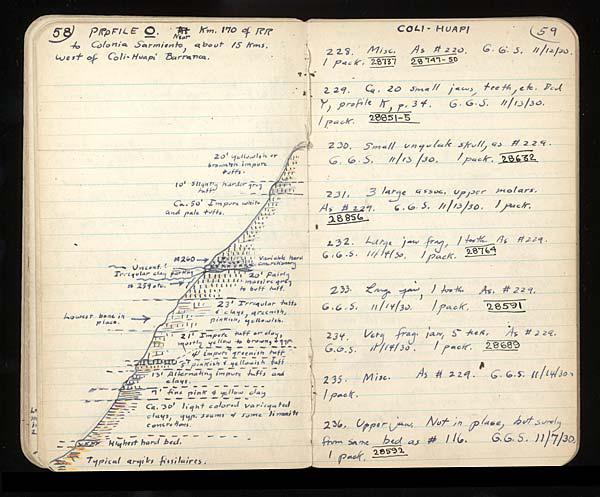 58 PROFILE O. Near Km. 170 of RR
to Colonia Sarmiento, about 15 kms.
west of Coli-Huapi Barranca.
20' Yellowish or
brownish impure
tuffs.
10' Slightly harder gray
tuff
Ca. 50' Impure white
and pale tuffs.
#260
Variable hard
concretionary
Unconf.?
Irregular clay parting
20' Fairly
massive grey
to buff tuff.
#259 etc.
23' Irregular tuffs
& clays, greenish,
pinkish, yellowish.
Lowest bone in
place.
21' Impure tuff or clay,
mostly yellow to brown, gyp.
4' Impure greenish tuff
5' pinkish & yellowish tuff
13' Alternating impure tuffs and
clays.
9' fine pink & yellow clay
Ca. 30' light colored variegated
clays, gyp. seams & some limonite
concretions.
Highest hard bed.
Typical argiles fissilaires.
COLI-HUAPI 59
228. Misc. As #220. G.G.S. 11/12/30.
1 pack. 28737 28747-50
229. Ca. 20 small jaws, teeth, etc. Bed
Y, profile K, p. 34. G.G.S. 11/13/30.
1 pack. 28851-5
230. Small ungulate skull, as #229.
G.G.S. 11/13/30. 1 pack. 28632
231. 3 large assoc. upper molars.
As #229. G.G.S. 11/13/30. 1 pack.
28856
232. Large jaw frag, 1 tooth As #229.
G.G.S. 11/14/30. 1 pack. 28764
233. Large jaw, 1 tooth As. #229.
G.G.S. 11/14/30. 1 pack. 28591
234. Very frag. jaw, 5 teeth. As #229.
G.G.S. 11/14/30. 1 pack. 28689
235. Misc. As #229. G.G.S. 11/14/30.
1 pack.
236. Upper jaw. Not in place, but surely
from same bed as #116. G.G.S. 11/7/30.
1 pack. 28592